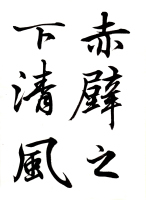 赤壁之
下清風